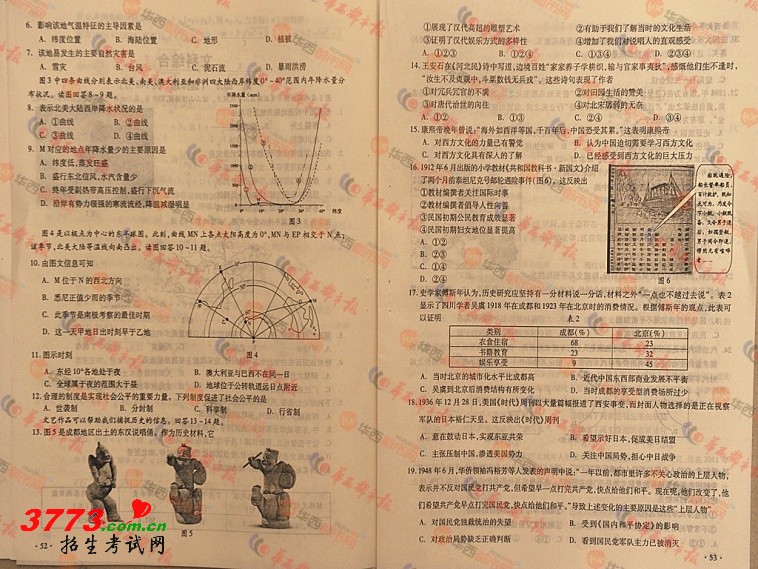 6. 影响该地气温特征的主导因素是
A. 纬度位置 B. 海陆位置 C. 地形 D. 植被
7. 该地易发生的主要自然灾害是
A. 雪灾 B. 台风 C. 泥石流 D. 暴雨洪涝
图3中四条曲线分别表示北美、南美、澳大利亚和非洲四大陆西岸纬度0°~40°范围内年降水量分
布状况。读图回答8~9题。
8. 表示北美大陆西岸降水状况的是
A. ①曲线 B. ②曲线
C. ③曲线 D. ④曲线
9. M对应的地点年降水量少的主要原因是
A. 纬度低,蒸发旺盛
B. 盛行东北信风,水汽含量少
C. 终年受副热带高压控制,盛行下沉气流
D. 沿岸有势力很强的寒流流经,降温减湿明显
年降水量(mm)
纬度
图3
图4是以极点为中心的东半球图。此刻,曲线MN上各点太阳高度为0°,MN与EP相交于N点;
该季节,北美大陆等温线向南凸出。读图回答10~11题。
10. 由图文信息可知
A. M位于N的西北方向
B. 悉尼正值少雨的季节
C. 此季节是南极考察的最佳时期
D. 这一天甲地日出时刻早于乙地
图4
11. 图示时刻
A. 东经10°各地处于夜 B. 澳大利亚与巴西不在同一日
C. 全球属于夜的范围大于昼 D. 地球位于公转轨道远日点附近
12. 合理的制度是实现社会公平的重要力量。下列制度促进了社会公平的是
A. 世袭制 B. 分封制 C. 科举制 D. 行省制
文艺作品可以帮助我们捕捉历史的信息。回答13~14题。
13. 图5是成都地区出土的东汉说唱俑。作为历史材料,它
图5
3773.com.cn
招生考试网
·52·
①展现了汉代高超的雕塑艺术 ②有助于我们了解当时的文化生活
③证明了汉代娱乐方式的多样性 ④增加了我们对说唱人的直观感受
A. ①②③ B. ①②④ C. ①③④ D. ②③④
14. 王安石在《河北民》诗中写道,边境百姓“家家养子学耕织,输与官家事夷狄”,感慨他们生不逢时,
“汝生不及贞观中,斗粟数钱无兵戎”。这些诗句表现了作者
①对冗兵冗官的不满 ②对田园生活的赞美
③对唐代治世的向往 ④对北宋孱弱的无奈
A. ①② B. ①③ C. ②④ D. ③④
15. 康熙帝晚年曾说:“海外如西洋等国,千百年后,中国恐受其累。”这表明康熙帝
A. 对西方文化的力量已有警觉 B. 认为中国迫切需要学习西方文化
C. 对西方文化具有深入的了解 D. 已经感受到西方文化的巨大压力
16. 1912年6月出版的小学教材《共和国教科书·新国文》介绍
了两个月前的泰坦尼克号邮轮遇险事件(图6)。这反映出
①教材编撰者关注国际时事
②教材编撰者倡导人性向善
③民国初期公民教育成效显著
④民国初期妇女地位显著提高
A. ①②
B. ①③
C. ②④
D. ③④
图6
17. 史学家傅斯年认为,历史研究应坚持有一分材料说一分话,材料之外“一点也不越过去说”。表2
显示了四川学者吴虞1918年在成都和1923年在北京时的消费情况。根据傅斯年的观点,此表可
以证明
表2
类别 成都(%) 北京(%)
衣食住宿 68 23
书籍教育 23 32
娱乐享受 9 45
A. 当时北京的城市化水平比成都高 B. 近代中国东西部商业发展不平衡
C. 吴虞到北京后消费结构有所变化 D. 当时成都的享受型消费场所过少
18. 1936年12月28日,美国《时代》周刊以大量篇幅报道了西安事变,而封面人物选择的是正在视察
军队的日本裕仁天皇。这反映出《时代》周刊
A. 意在鼓动日本,实现东亚共荣 B. 希望示好日本,促成美日结盟
C. 主张压制中国,渗透美国势力 D. 关注中国局势,担心中日战争
19. 1948年6月,华侨领袖冯裕芳等人发表的声明中说:“一年以前,都市里许多不关心政治的上层人物,
表示并不反对国民党打共产党,但希望早一点打完共产党,快点给他们和平。现在呢,他们改变了,他
们希望共产党早点打完国民党,快点给他们和平。”导致上述变化的主要原因是这些“上层人物”
A. 对国民党独裁统治的失望 B. 受到《国内和平协定》的影响
C. 对政治局势缺乏正确判断 D. 看到国民党军队主力已被消灭
·53·